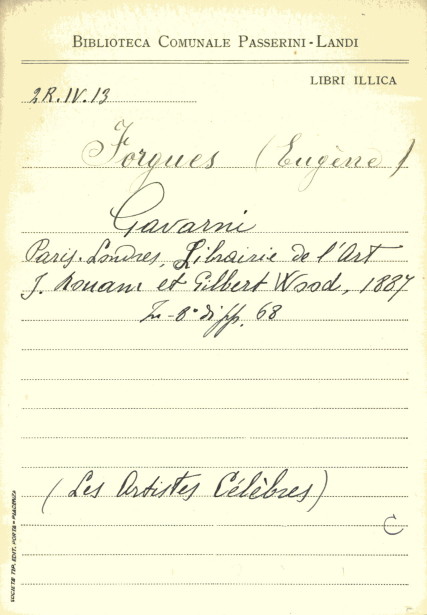 BIBLIOTECA COMUNALE PASSERINI-LANDI
LIBRI ILLICA
2R.IV.13
Forgues (Eugène)
Gavarni
Paris-Londres, Librairie de l'Art
J. Rouam et Gilbert Wood, 1887
In-8° di pp. 68
(Les Artistes Célèbres)
C
SOCIETÀ TIP. EDIT. PORTA - PIACENZA